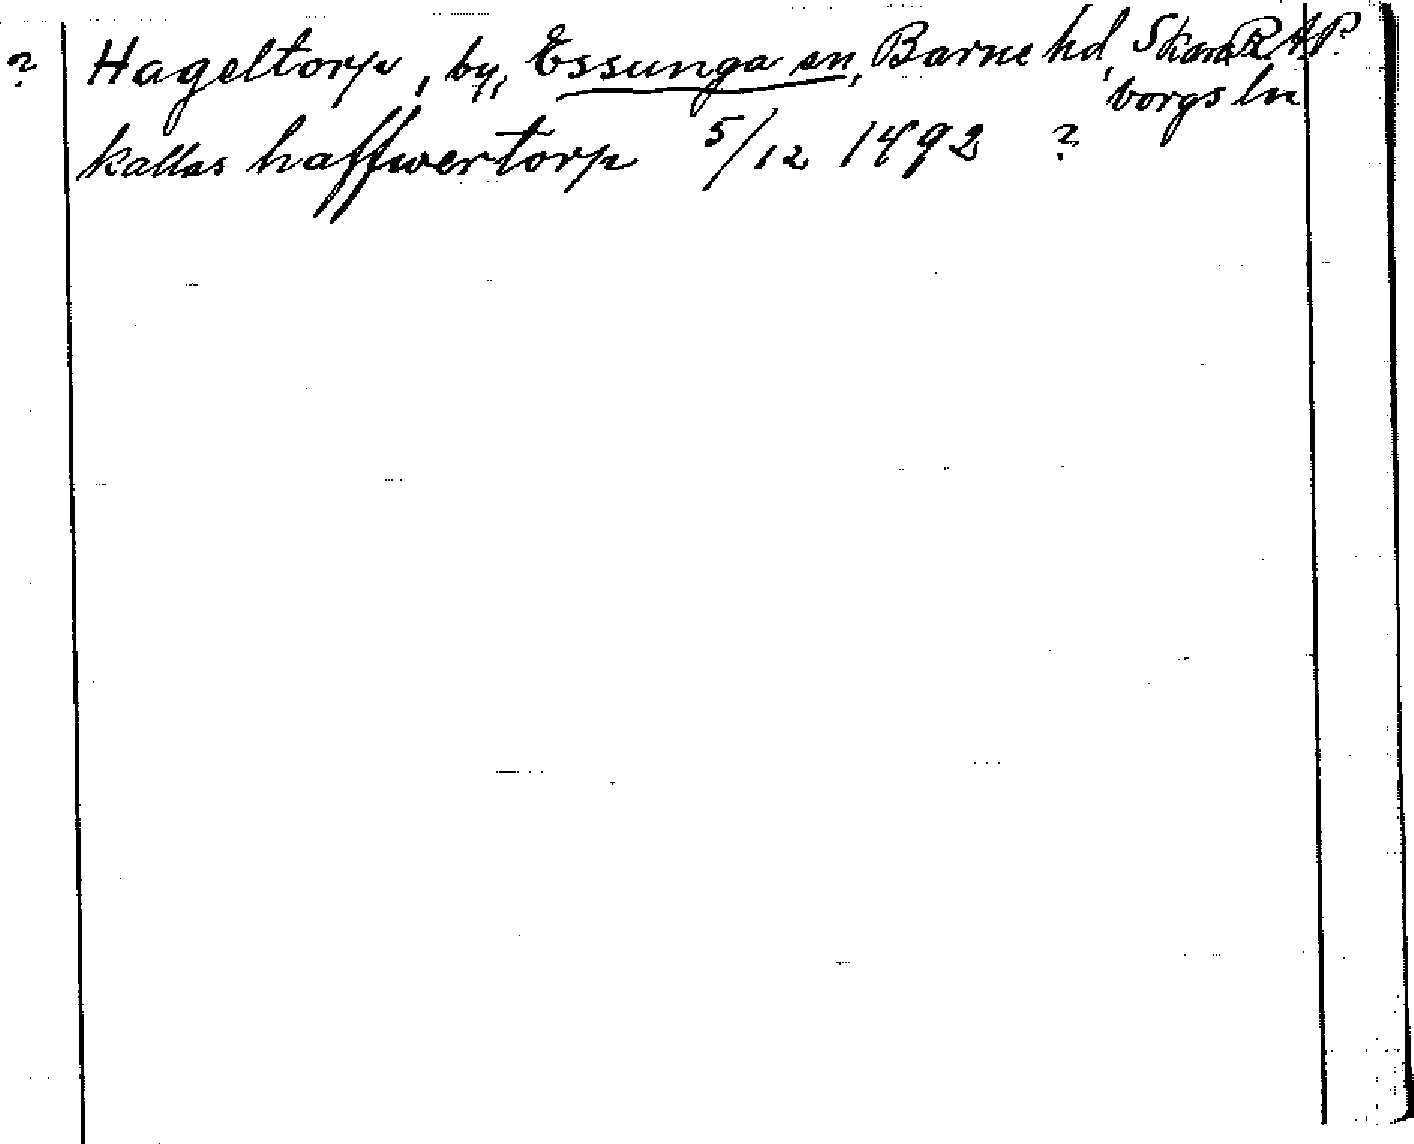 ? Hageltorp, by, Essunga sn, Barne hd, Skara R.A.P.
borgs ln
kallas haffwertorp 5/12 1492 ?